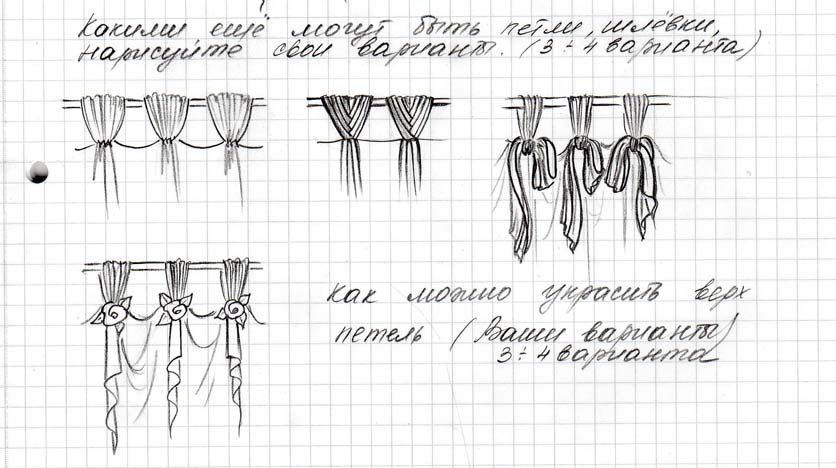 Какими ещё могут быть петли, шлёвки,
нарисуйте свои варианты. (3÷4 варианта)
Как можно украсить верх
петель (Ваши варианты)
3÷4 варианта